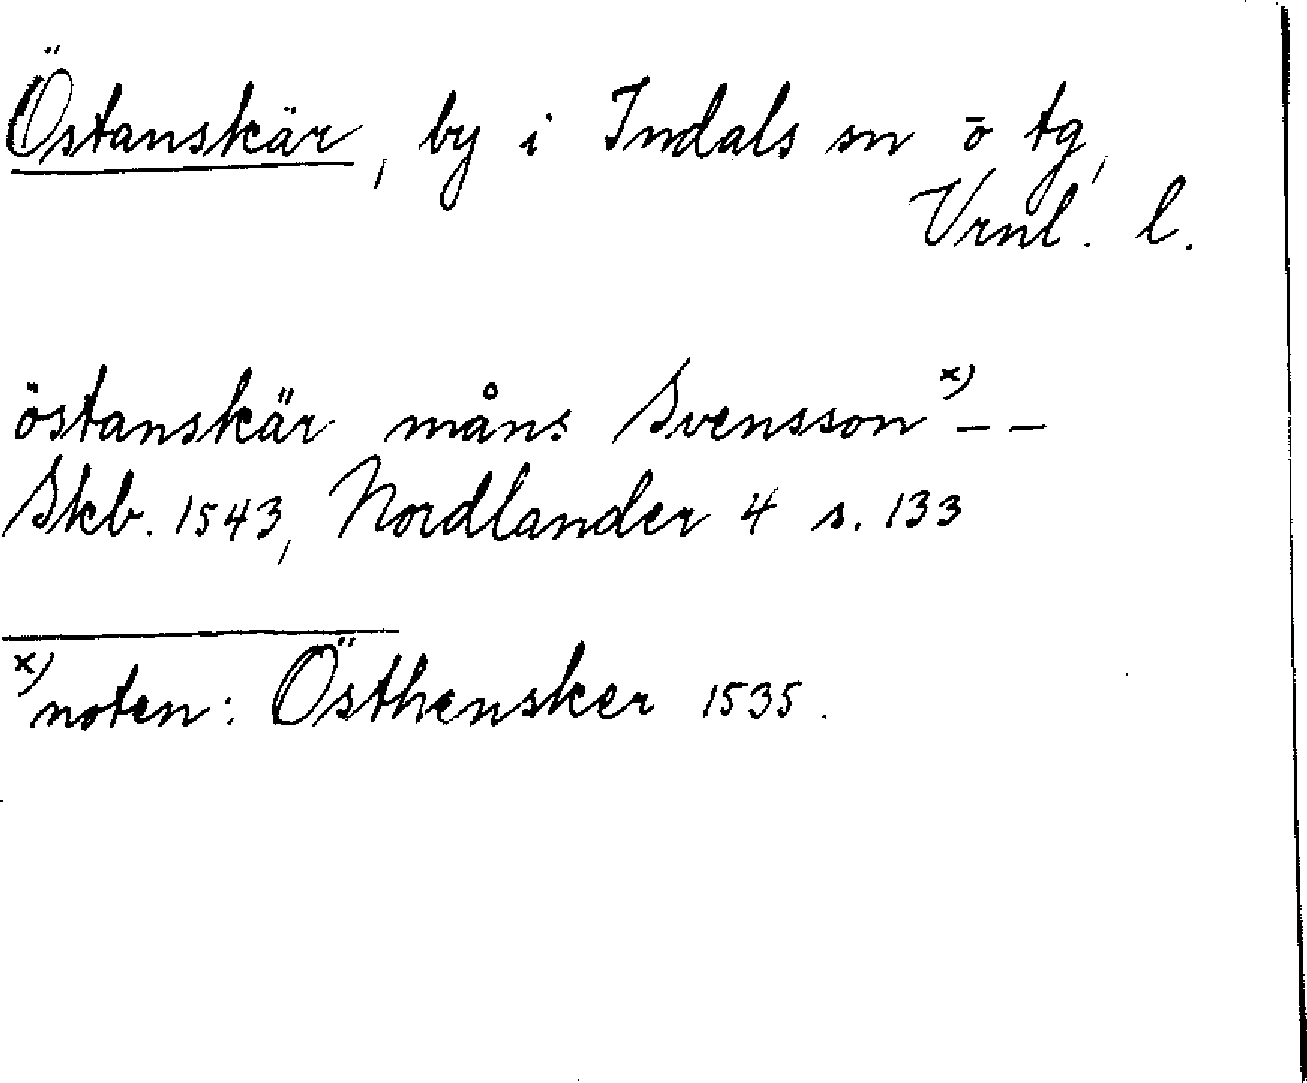 Östanskär, by i Indals sn o tg,
Vrnl. l.
östanskär måns Svensson x) – –
Skb. 1543, Nordlander 4 s. 133
x) noten: Östhensker 1535.